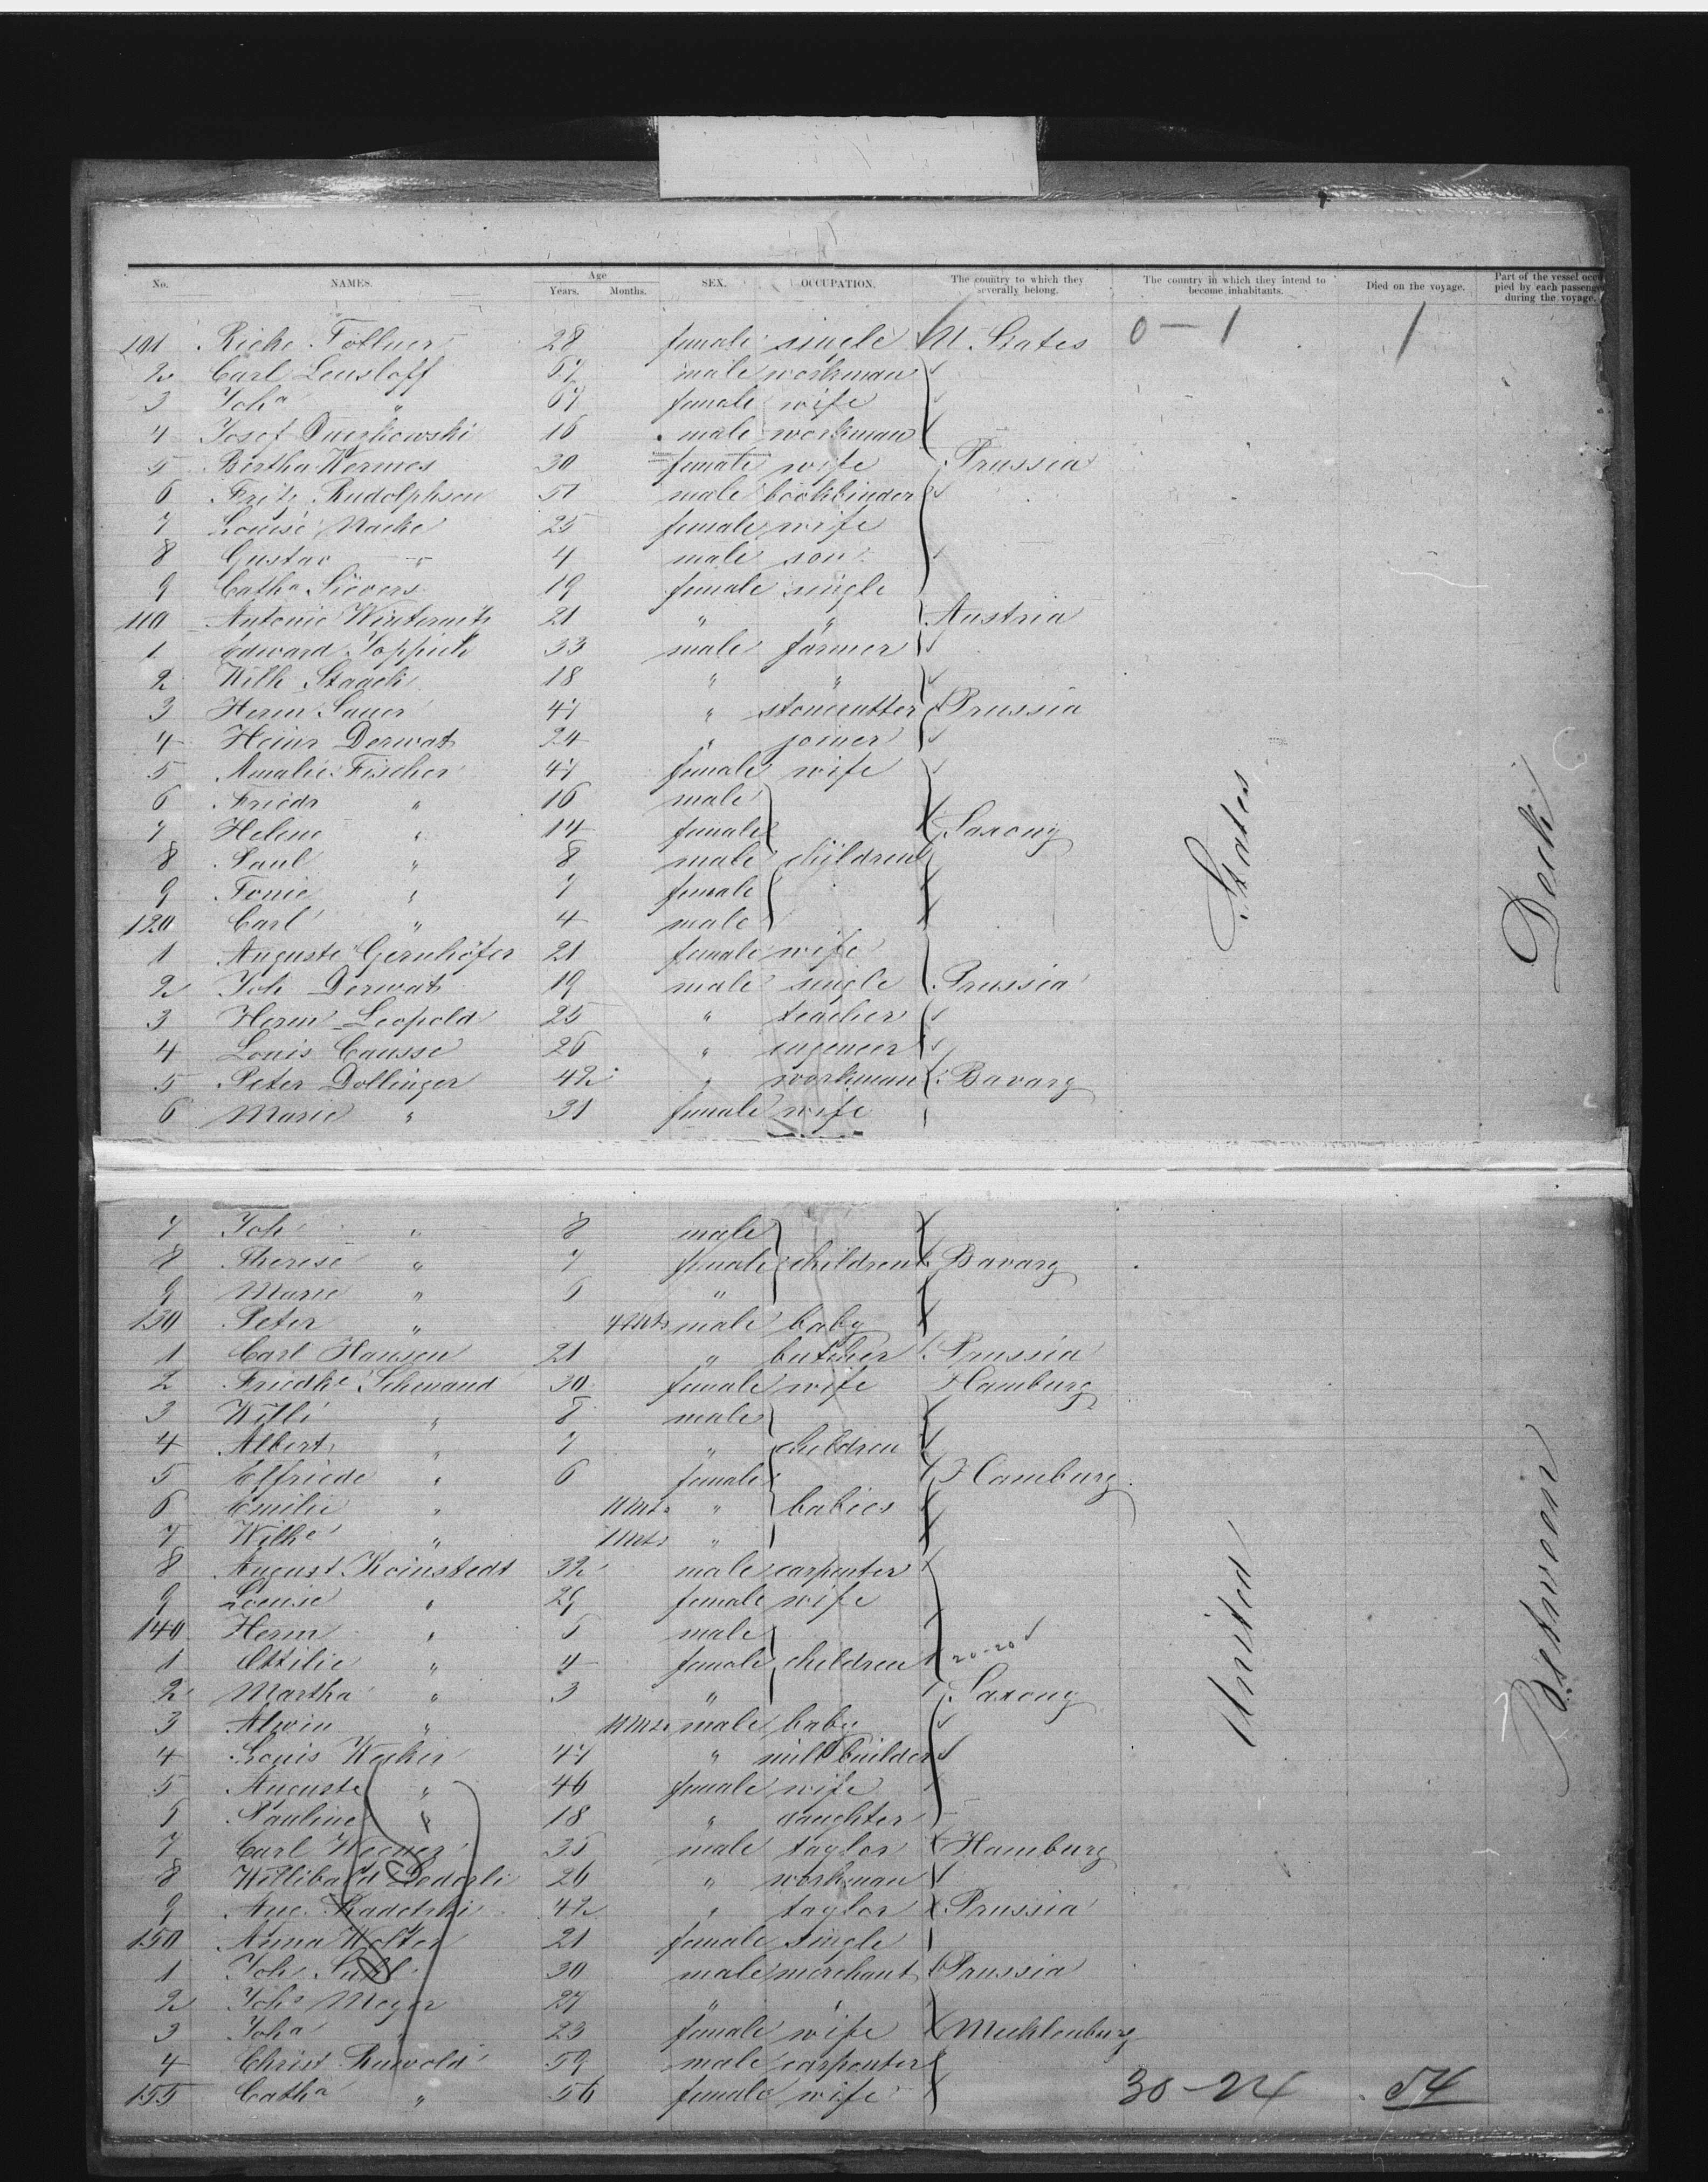 No. NAMES. Age Years. Months. SEX. OCCUPATION. The country to which they severally belong. The country in which they intend to become inhabitants. Died on the voyage. Part of the vessel occupied by each passenger during the voyage.
101 Rieke Töllner 28 female single U. States 0-1 1
2 Carl Lensloff 67 male workman
3 Joha " 67 female wife
4 Josef 16 male workman
5 Bertha Wermes 30 female wife Prussia
6 Fritz Rudolphsen 51 male bookbinder
7 Louise Nacke 25 female wife
8 Gustav 4 male son
9 Catha Sievers 19 female single
110 Antonie Winternitz 21 " " Austria
1 Edward 33 male farmer
2 Wilh Staack 18 " "
3 Herm Sauer 47 " stonecutter Prussia
4 Heinr Derwat 24 " joiner
5 Amalie Fischer 47 female wife
6 Friedr " 16 male
7 Helene " 14 female Saxony
8 Paul " 8 male children
9 Tonie " 7 female
120 Carl " 4 male
1 Auguste Gernhöfer 21 female wife
2 Joh Derwat 19 male single Prussia
3 Herm Leopold 25 " teacher
4 Louis Causse 26 " engeneer
5 Peter Dollinger 42 " workman Bavary
6 Marie " 31 female wife
7 Joh " 8 male
8 Therese " 7 female children Bavary
9 Marie " "
130 Peter " 4 Mts male baby
1 Carl Hansen 21 " butcher Prussia
2 Friedke Schwand 30 female wife Hamburg
3 Willi " 8 male
4 Albert " 7 " children
5 Elfriede " 6 female Hamburg
6 Emilie " 11 Mts " babies
7 Wilhe " 1 Mts "
8 August Koinstedt 32 male carpenter
9 Louise " 29 female wife
140 Herm " 5 male
1 Ottilie " 4 female children 20-20
2 Martha " 3 " Saxony
3 Alwin " 11 Mts male baby
4 Louis 47 " mill builder
5 Auguste " 46 female wife
5 Pauline " 18 " daughter
7 Carl Wegner 35 male taylor Hamburg
8 Willibald 26 " workman
9 Aug. Radetzki 42 " taylor Prussia
150 Anna Wolter 21 female single
1 Joh 30 male merchant Prussia
2 Johs Meyer 27 " "
3 Joha " 23 female wife Mecklenburg
4 Christ Ruwold 59 male carpenter
155 Catha " 56 female wife 30-24 54
United States
Between Deck